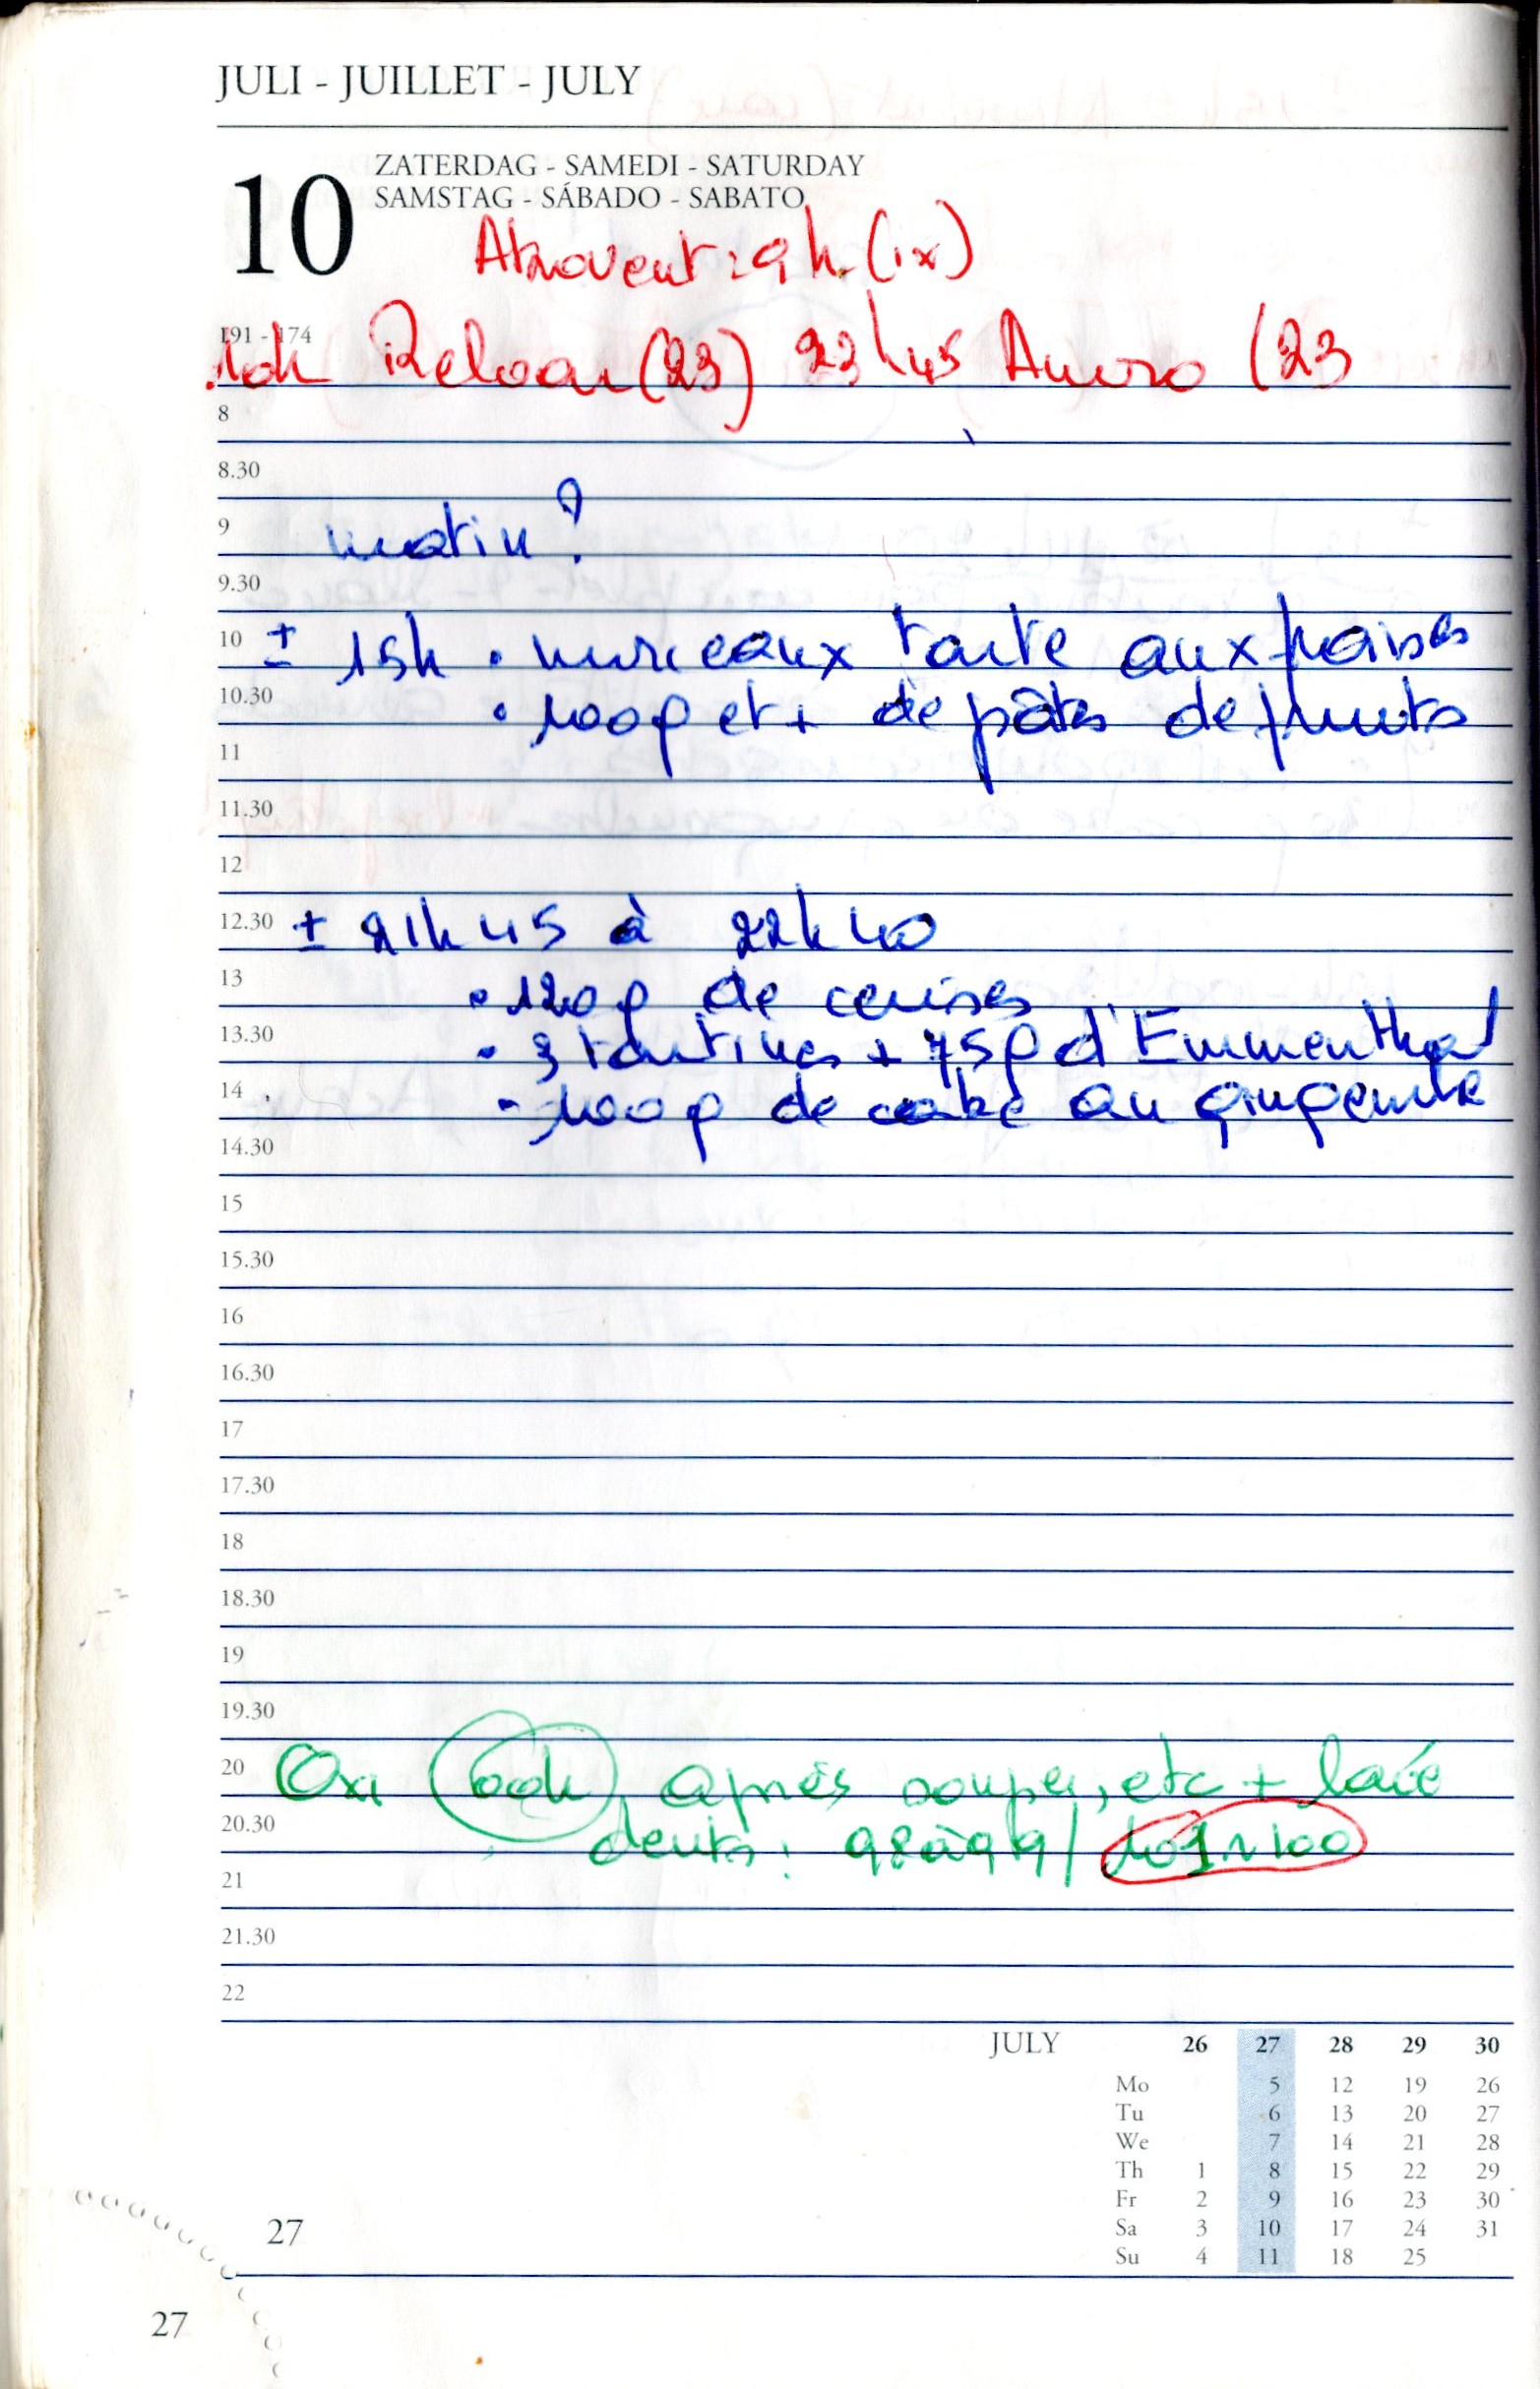 JULI - JUILLET - JULY
10
ZATERDAG - SAMEDI - SATURDAY
SAMSTAG - SÁBADO - SABATO
Atrovent : 9h (1x)
191 - 174
10h Relvar (23) 22h45 Anoro (23
8
8.30
9 matin ?
9.30
10 ± 15h • morceaux tarte aux fraises
10.30 • 100g et + de pâtes de fruits
11
11.30
12
12.30 ± 21h45 à 22h40
13 • 120g de cerises
13.30 • 3 tartines + 75g d'Emmenthal
14 • 100g de cake au gingembre
14.30
15
15.30
16
16.30
17
17.30
18
18.30
19
19.30
20 Oxi 00h après souper, etc + lavé
20.30 dents : 98 à 99 / 101 ~ 100
21
21.30
22
JULY 26 27 28 29 30
Mo 5 12 19 26
Tu 6 13 20 27
We 7 14 21 28
Th 1 8 15 22 29
Fr 2 9 16 23 30
Sa 3 10 17 24 31
Su 4 11 18 25
27
27